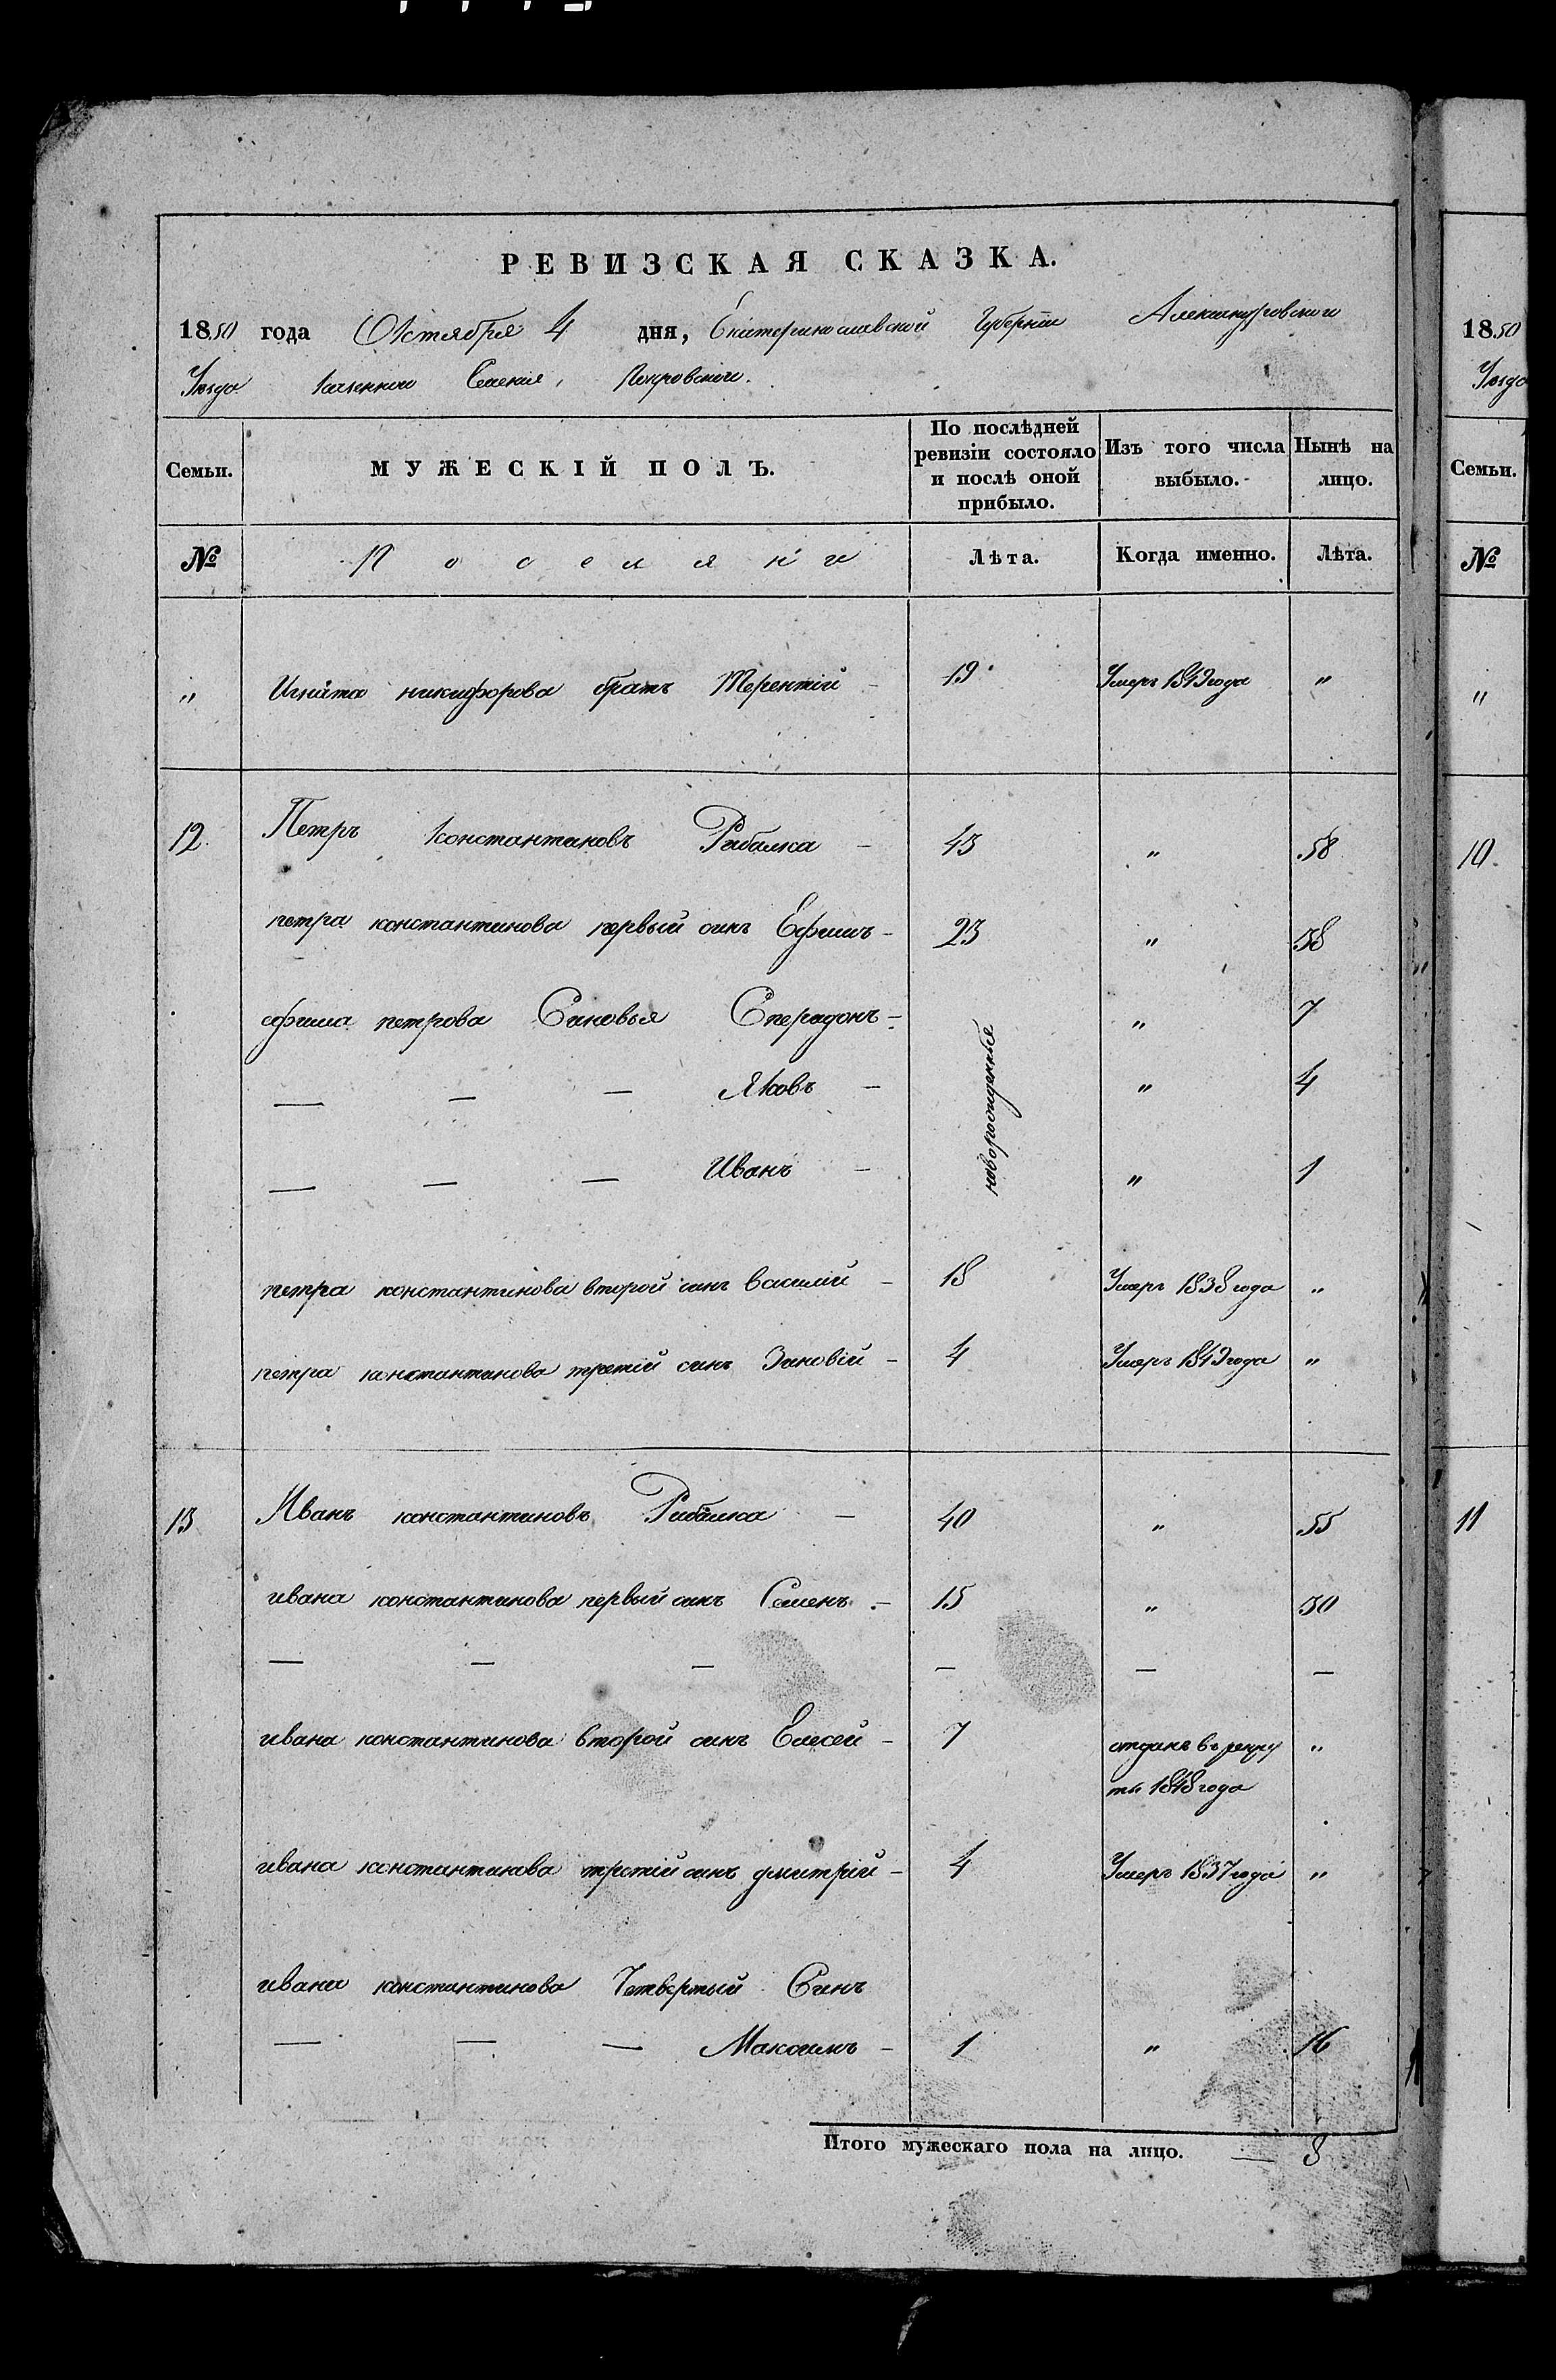 РЕВИЗСКАЯ СКАЗКА.
1850 года Октября 4 дня, Екатеринославской Губернїи Александровского
Уѣзда Казенного Селения, Покровского.
Семьи. МУЖЕСКІЙ ПОЛЪ. По послѣдней ревизіи состояло и послѣ оной прибыло. Изъ того числа выбыло. Нынѣ на лицо.
№ Поселяни Лѣта. Когда именно. Лѣта.
" Игната никифорова братъ Терентій - 19 Умеръ 1849 года "
12. Петръ Константиновъ Рибалка - 43 " 58
петра константинова первый синъ Ефимъ - 23 " 38
ефима петрова Синовья Сперидонъ - новорожденные " 7
— — — Яковъ - " 4
— — — Иванъ - " 1
петра константинова второй синъ василий - 18 Умеръ 1838 года "
петра константинова третій синъ Зиновій - 4 Умеръ 1849 года "
13 Иванъ константиновъ Рибалка - 40 " 55
ивана константинова первый синъ Семенъ - 15 " 30
— — — — — —
ивана константинова второй синъ Елесей - 7 отданъ въ рекру "
ты 1848 года
ивана константинова третій синъ дмитрій - 4 Умеръ 1837 года "
ивана константинова Четвертый Синъ
— — — Максимъ - 1 " 16
Итого мужескаго пола на лицо. — 8
1850
Уѣзда
Семьи.
№
"
10.
11